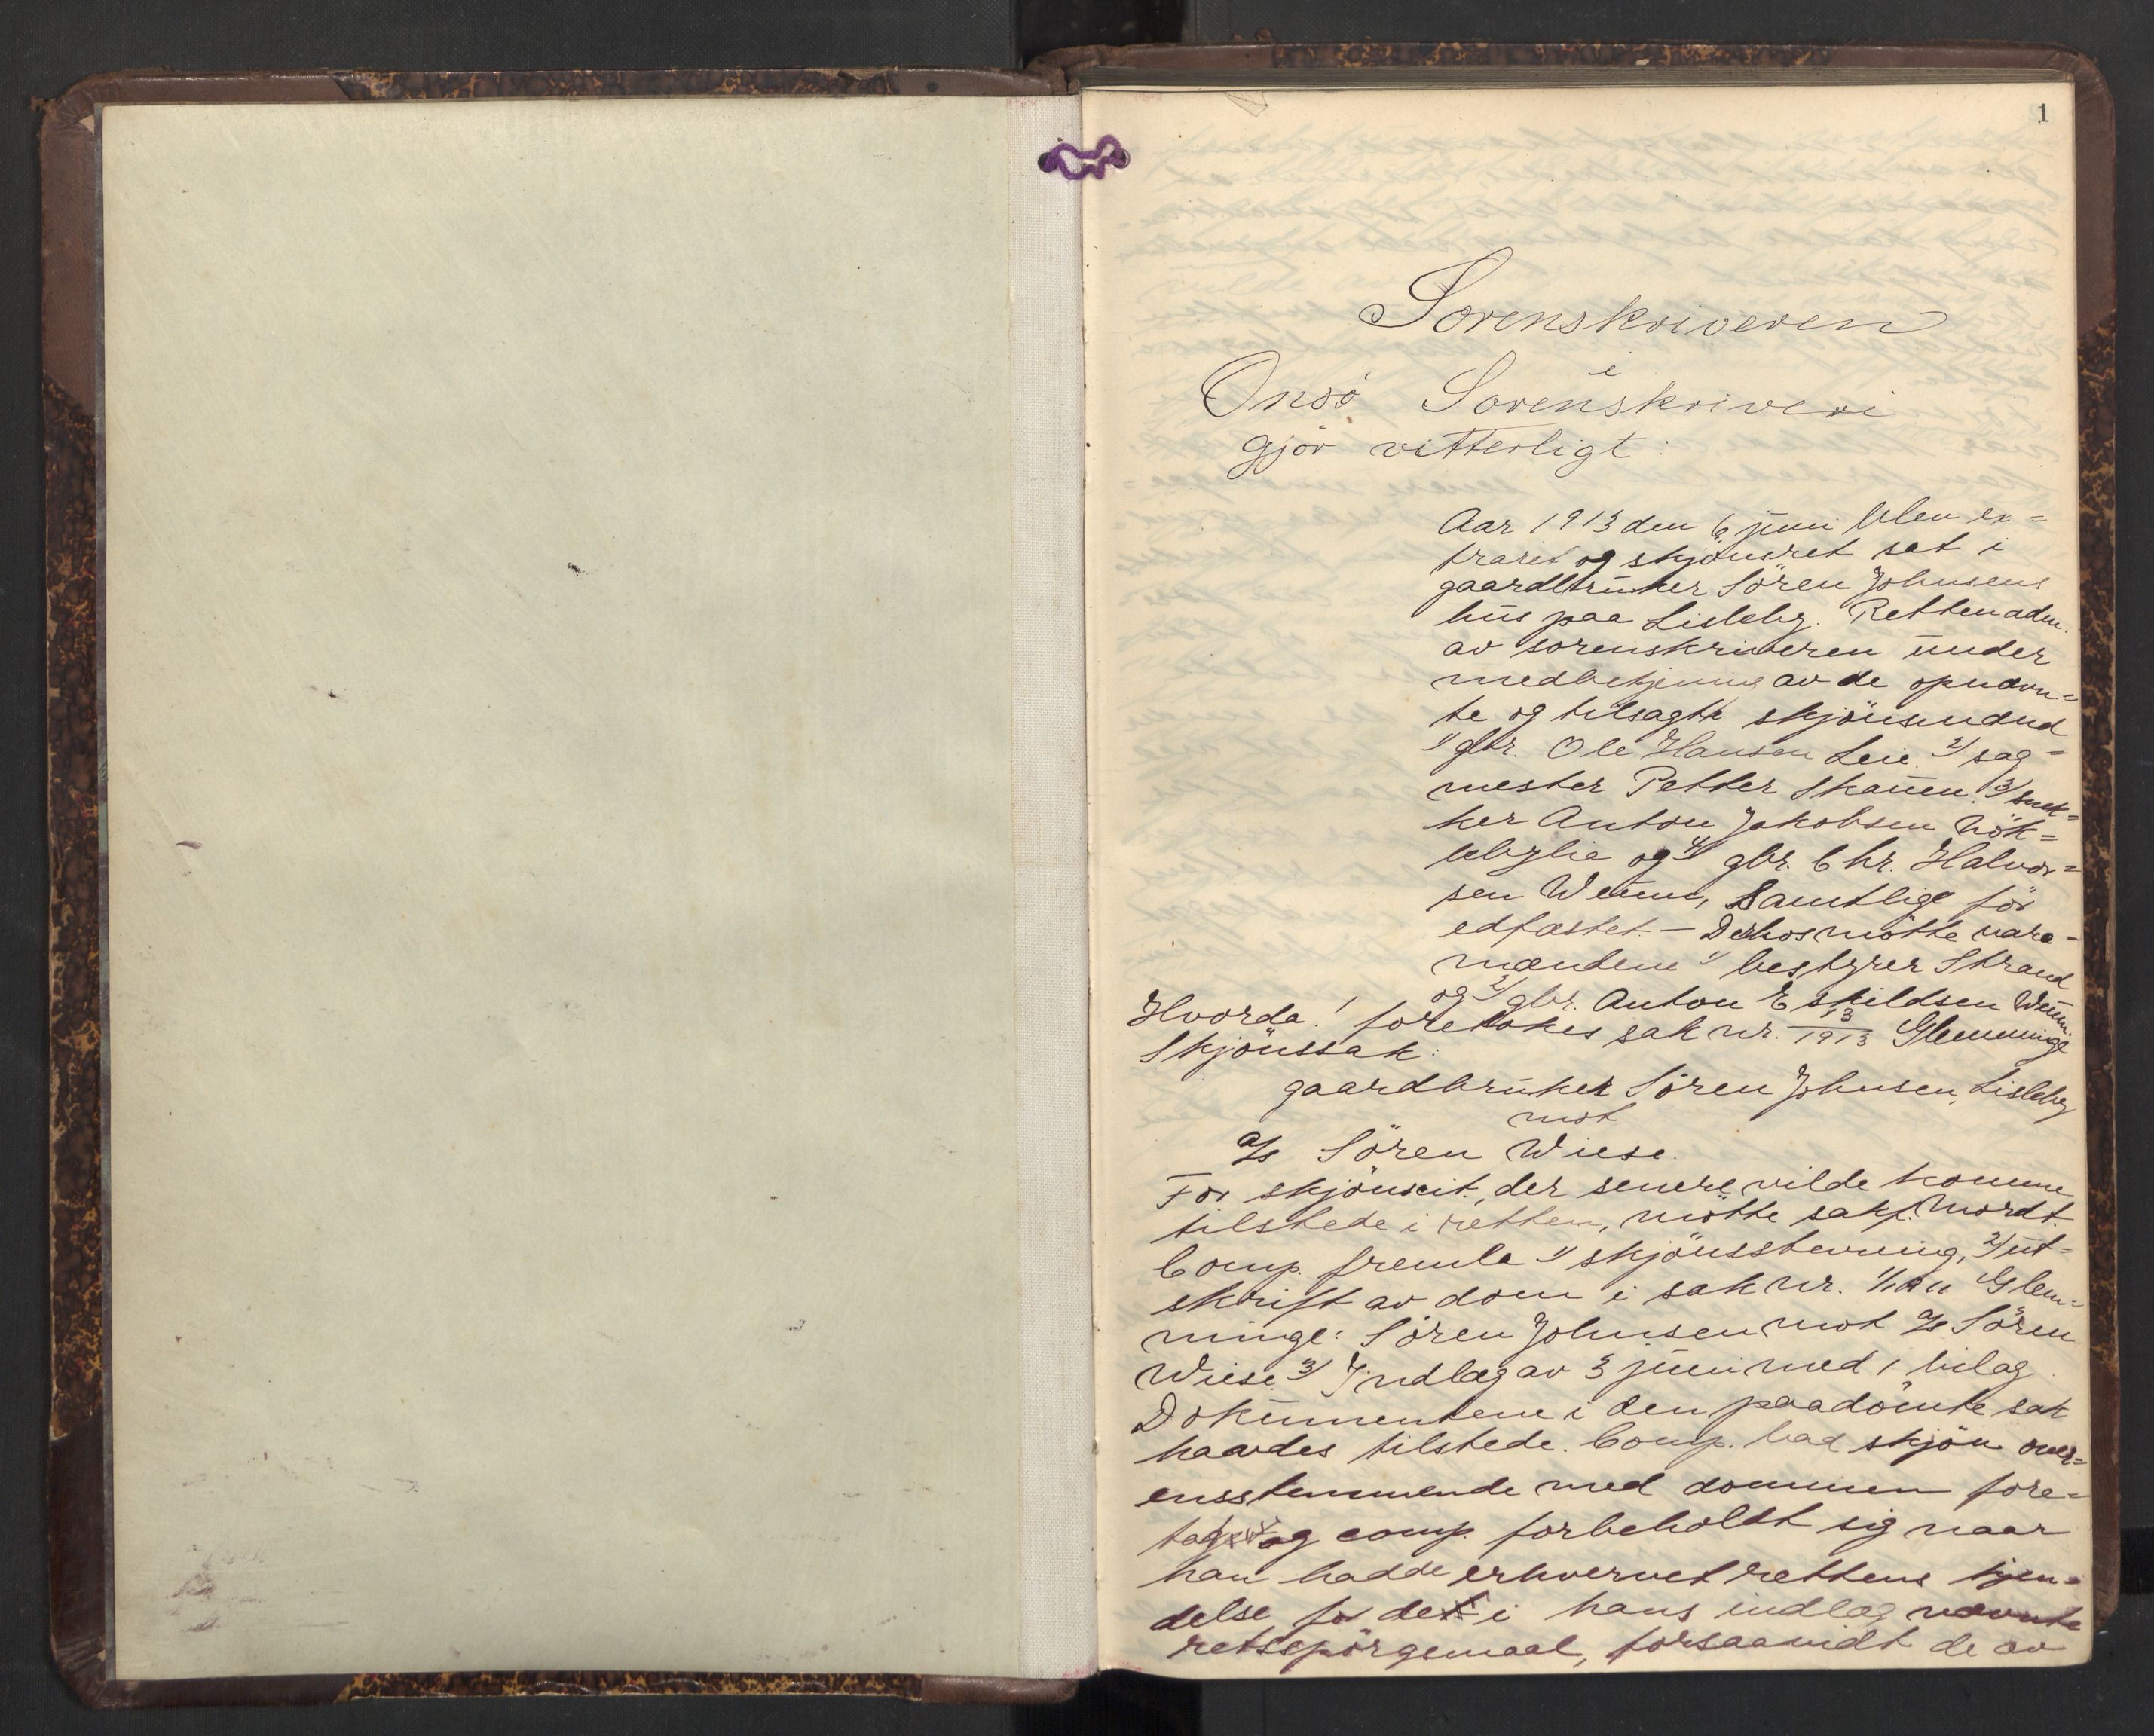 1
Sorenskriveren
i
Onsö Sorenskriveri
gjör vitterligt:
Aar 1913 den 6 juni blev ex=
traret og skjönsret sat i
gaardbruker Sören Johnsens
hus paa Lisleby. Retten adm.
av sorenskriveren under
medbetjening av de opnævn=
te og tilsagte skjönsmænd
1/ gbr. Ole Hansen Leie 2/ sag=
mester Petter Skauen. 3/ snek=
ker Anton Jakobsen Nök=
lebylie og 4/ gbr. Chr. Halvor=
sen Weum, samtlige för
edfæstet. — Derhos mötte vara=
mændene 1/ bestyrer Strand
og 2/ gbr. Anton Eskildsen Weum.
Hvorda! foretokes sak nr. 13/1913 Glemminge
Skjönssak:
gaardbruker Sören Johnsen, Lisleby
mot
a/s Sören Wiese.
For skjönscit. der senere vilde komme
tilstede i retten, mötte sakf. Mordt.
Comp. fremla 1/ skjönsstevning, 2/ ut=
skrift av dom i sak nr. 1/1911 Glem=
minge: Sören Johnsen mot a/s Sören
Wiese 3/ Indlæg av 3 juni med 1 bilag.
Dokumentene i den paadömte sak
haddes tilstede. Comp. bad skjön over=
ensstemmende med dommen fore=
tat og comp. forbeholdt sig naar
han hadde erhvervet rettens kjen=
delse for det i hans indlæg nævnte
retsspörgsmaal, forsaavidt de av